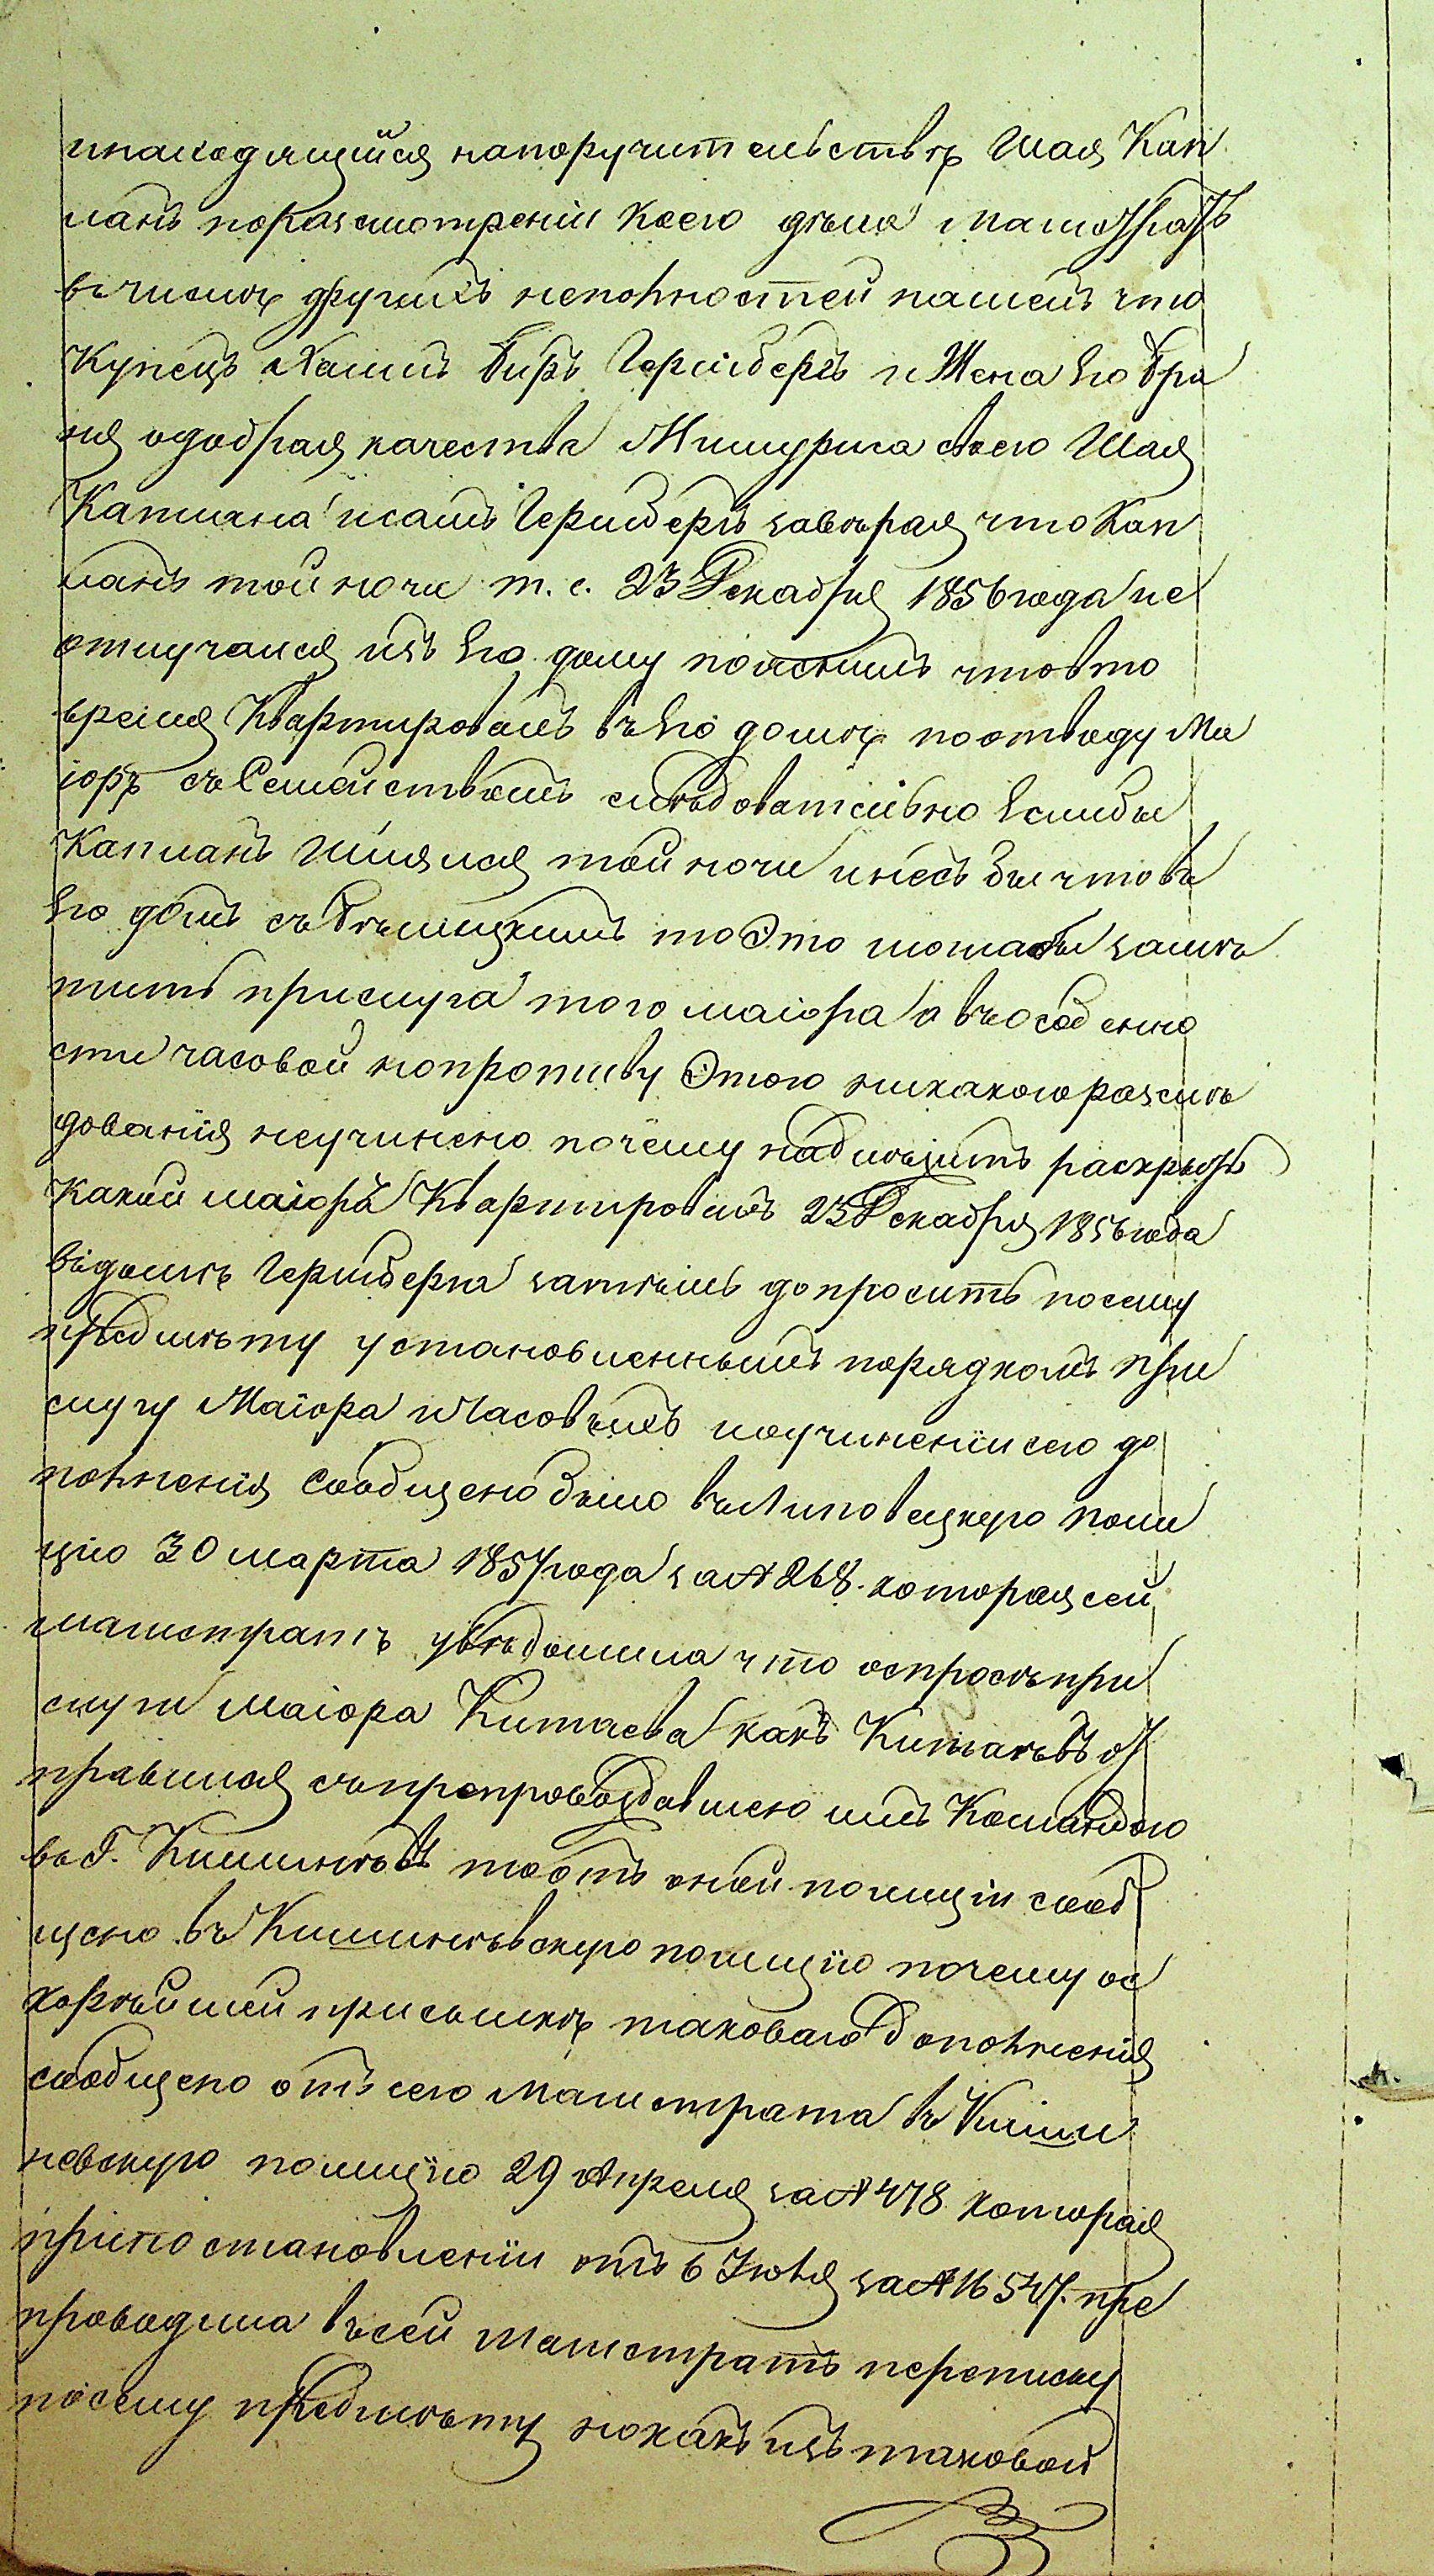 инаходящийся напоручительствѣ Шая Кап
ланъ поразсмотреніи коего дѣла магистратъ
вчислѣ другихъ неполностей нашелъ что
Купецъ Хаимъ Биръ Герцбергъ и Жена Его Бра
ня одобряя качества Мишуриса своего Шая
Каплана исамъ Герцбергъ заверяя что Кап
ланъ той ночи т. е. 23 Декабря 1856 года не
отлучался изъ Его дому пояснилъ чтовто
время Квартировалъ въ Его домѣ поотводу Ма
іоръ съ Семействомъ слѣдовательно Еслибы
Капланъ Шлялся той ночи инесъ бы что въ
Его домъ съ Бѣлицкимъ то Это моглабы замѣ
тить прислуга того маіора а въособенно
сти часовой нопротиву Этого никакого разслѣ
дованія неучинено почему надлѣжитъ раскрыть
Какой маіоръ Квартировалъ 23 Декабря 1856 года
вдомѣ Герцберга затѣмъ допросить посему
предмѣту установленнымъ порядкомъ при
слугу Маіора иЧасовыхъ иоучиненіи сего до
полненія Сообщено было въ Липовецкую поли
цію 30 марта 1857 года за № 268. которая сей
магистратъ увѣдомила что оспросъ при
слуги маіора Китаева какъ Китаевъ от
правился съпрепровождавшею имъ Командою
въ Г. Кишинѣвъ тоотъ оной полиціи сооб
щено въ Кишинѣвскую полицію почему ос
корѣйшей присылкѣ таковаго Дополненія
сообщено отъ сего магистрата въ Киши
невскую полицію 29 Апреля за № 478 которая
припостановленіи отъ 6 Іюля за № 16547. пре
проводила въсей магистратъ переписку
посему предмѣту нокакъ изъ таковой